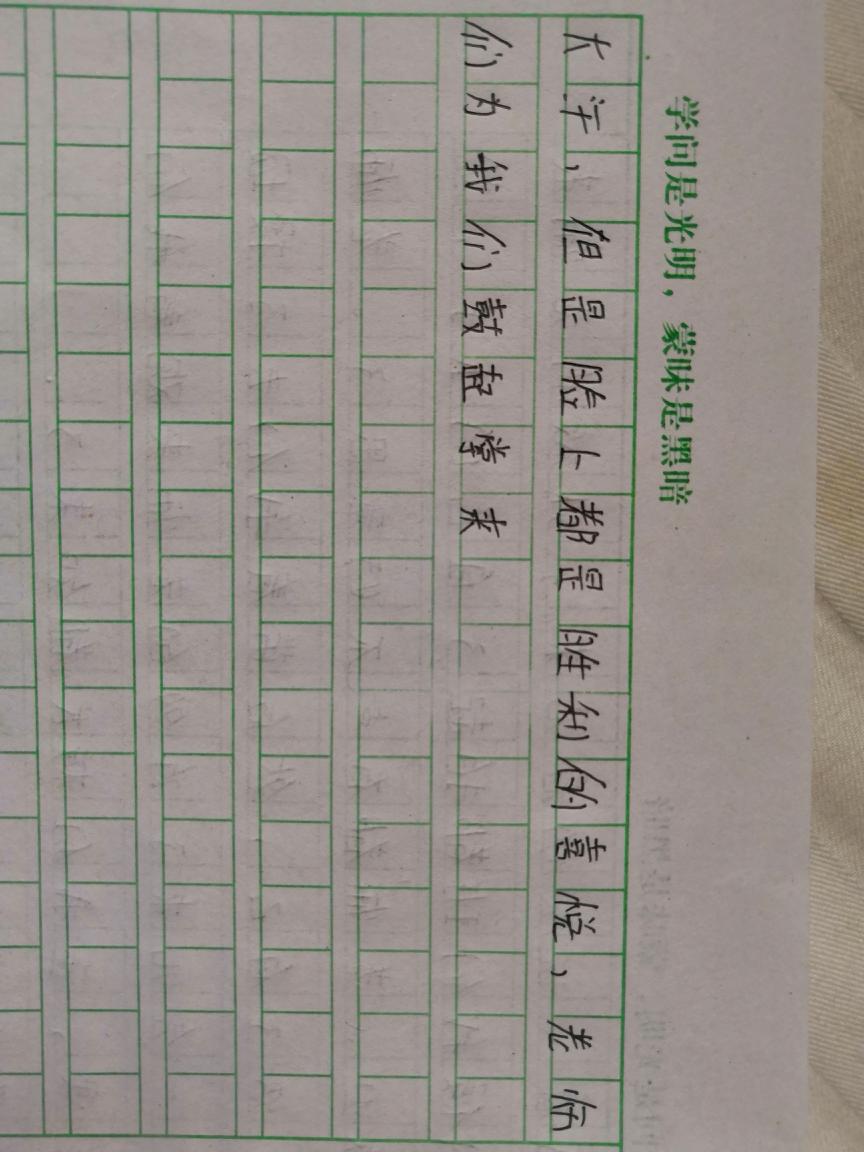 学问是光明，蒙昧是黑暗
大汗，但是脸上都是胜利的喜悦，老师
们为我们鼓起掌来